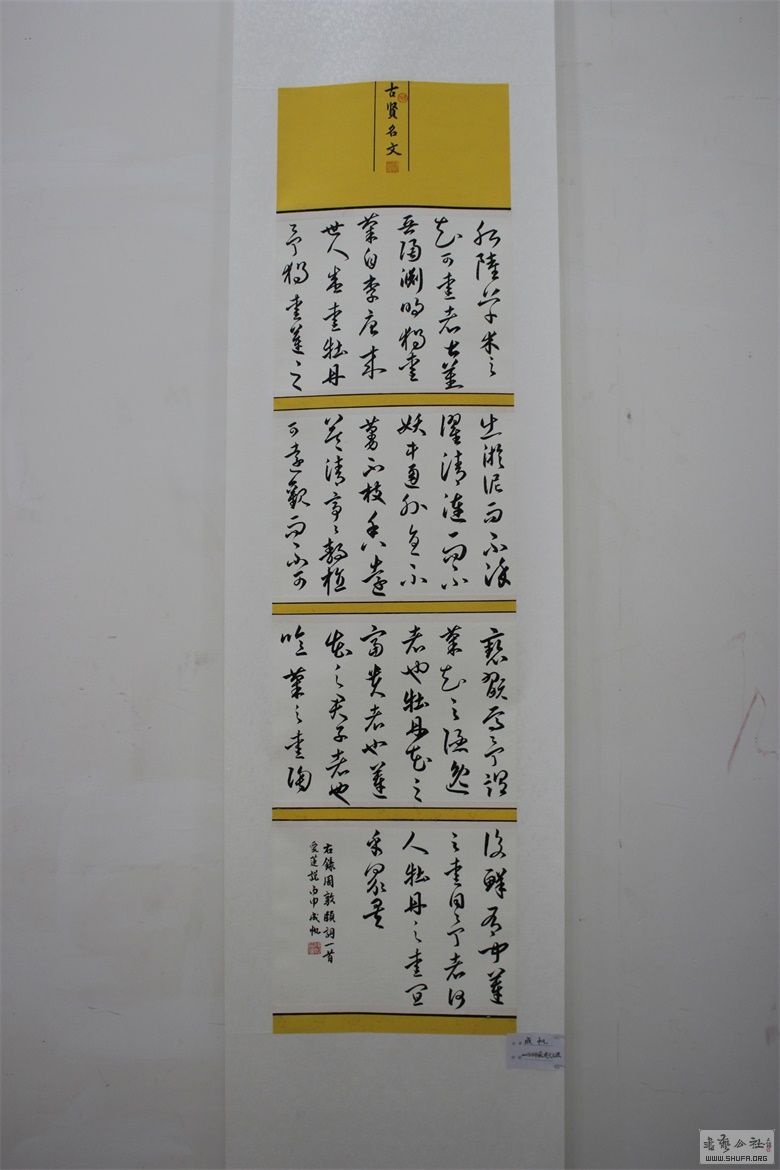 古賢名文
水陸草木之
花可愛者甚蕃
晉陶淵明獨愛
菊自李唐來
世人盛愛牡丹
予獨愛蓮之
出淤泥而不染
濯清漣而不
妖中通外直不
蔓不枝香遠
益清亭々静植
可遠觀而不可
褻翫焉予謂
菊花之隱逸
者也牡丹花之
富貴者也蓮
花之君子者也
噫菊之愛陶
後鮮有聞蓮
之愛同予者何
人牡丹之愛宜
乎眾矣
右錄周敦頤詞一首
愛蓮說丙申成帆
成帆
書藝公社
WWW.SHUFA.ORG